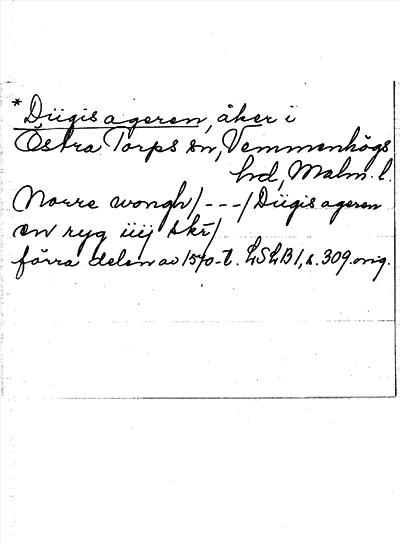 *Diigis ageren, åker i
Östra Torps sn, Vemmenhögs
hd, Malm. l.
Norre wongh/---/Diigis ageren
en ryg iiij skr/
förra delen av 1570-t. LSLB1, s. 309. orig.